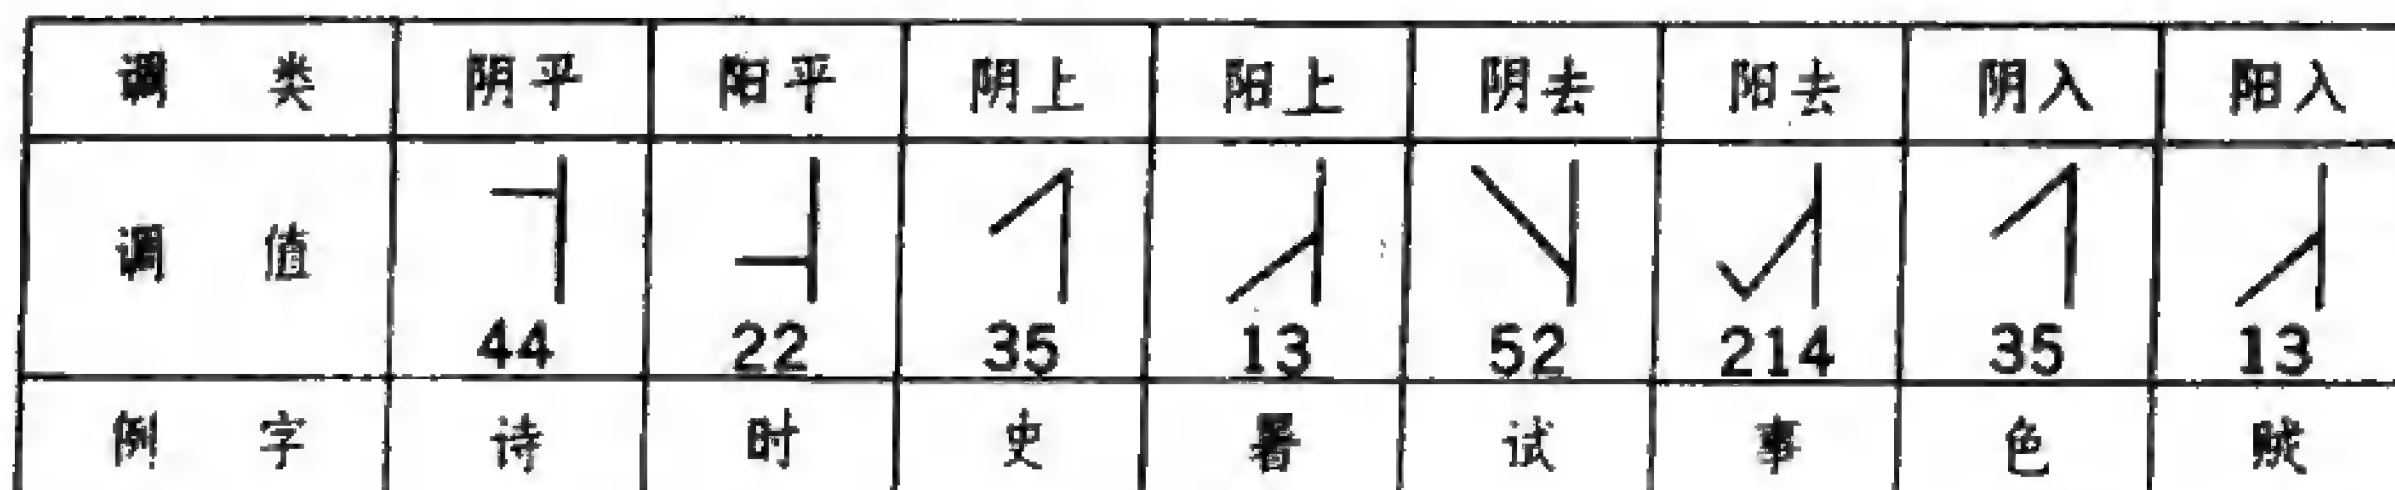 调 类 阴平 阳平 阴上 阳上 阴去 阳去 阴入 阳入
调 值 44 22 35 13 52 214 35 13
例 字 诗 时 史 署 试 事 色 贼